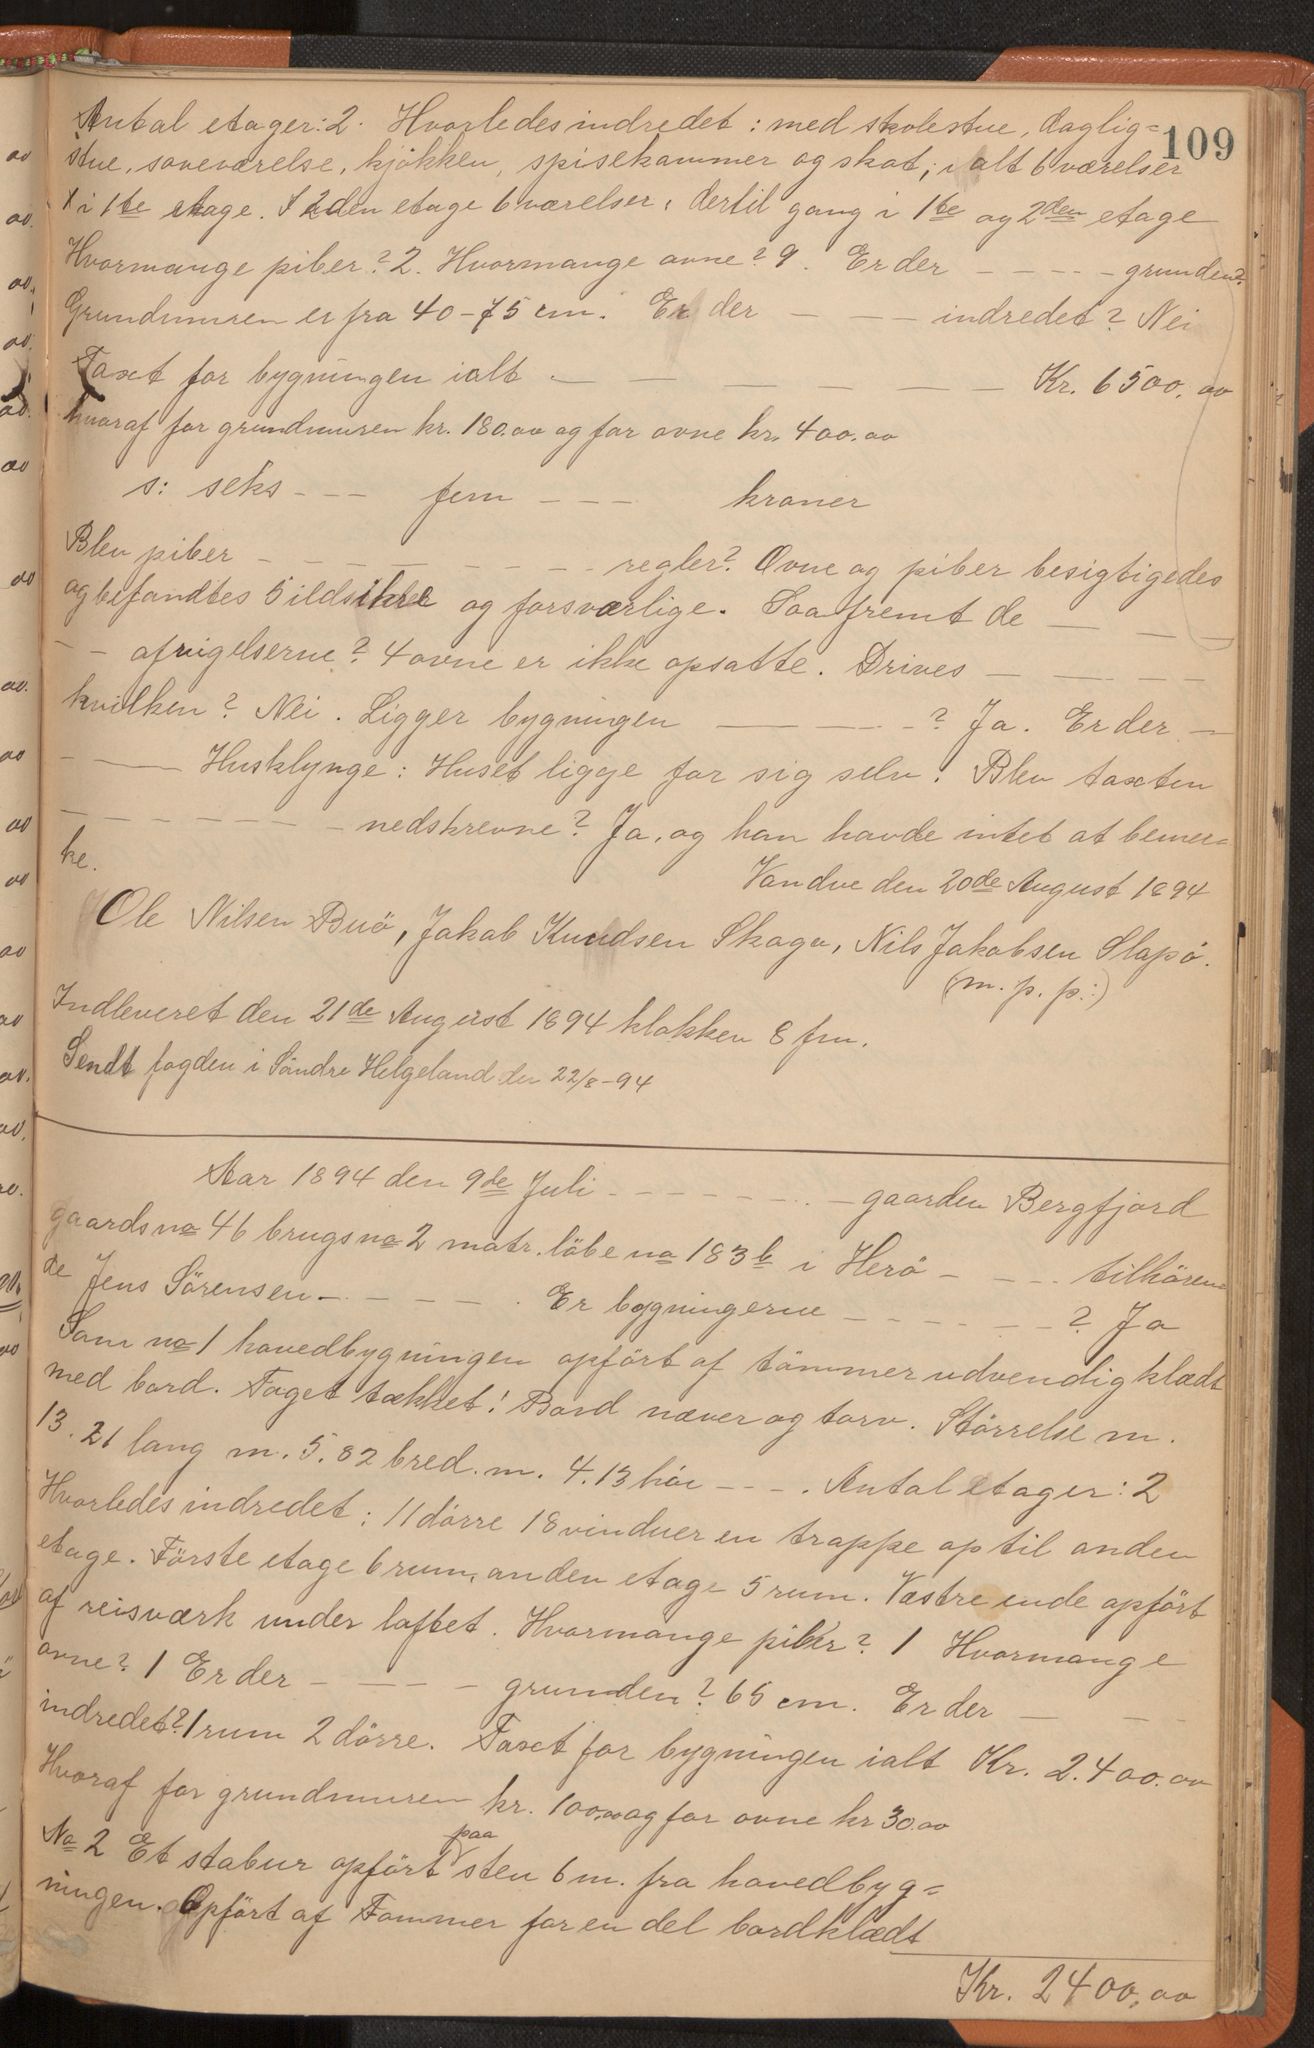 109
Antal etager: 2. Hvorledes indredet: med skolestue, daglig=
stue, soveværelse, kjøkken, spisekammer og skot; i alt 6 værelser
i 1te etage. I 2den etage 6 værelser, dertil gang i 1te og 2den etage
Hvormange piber? 2. Hvormange ovne? 9. Er der - - - - - grunden?
Grundmuren er fra 40-75 cm. Er der - - - indredet? Nei
Taxt for bygningen ialt - - - - - - - Kr. 6500.00
hvoraf for grundmuren kr. 180.00 og for ovne kr. 400.00
s: seks - - - fem - - - kroner
Blev piber - - - - - - - - regler? Ovne og piber besigtigedes
og befandtes 5 ildsikre og forsvarlige. Saafremt de - - -
- - afvigelserne? 4 ovne er ikke opsatte. Drives - - - -
hvilken? Nei. Ligger bygningen - - - -? Ja. Er der -
- - Husklynge: Huset ligge for sig selv. Blev taxten
- - - - - - - nedskrevne? Ja, og han havde intet at bemer=
ke.
Vandve den 20de August 1894
Ole Nilsen Buö, Jakob Knudsen Skaga, Nils Jakobsen Slapö.
(m. p. p:)
Indleveret den 21de August 1894 klokken 8 fm.
Sendt fogden i Söndre Helgeland den 22/8-94
Aar 1894 den 9de Juli - - - - - - - gaarden Bergfjord
gaardsno 46 brugsno 2 matr. löbe no 183b i Herö - - - - tilhören=
de Jens Sörensen - - - - - Er bygningerne - - - - - -? Ja
Som no 1 hovedbygningen opfört af tömmer udvendig klædt
med bord. Taget tækket: Bord næver og torv. Störrelse m.
13.21 lang m. 5.82 bred. m. 4.13 höi - - -. Antal etager: 2
Hvorledes indredet: 11 dörre 18 vinduer en trappe op til anden
etage. Förste etage 6 rum, anden etage 5 rum. Vestre ende opfört
af reisværk under loftet. Hvormange piber? 1 Hvormange
ovne? 1 Er der - - - - grunden? 65 cm. Er der - - -
indredet? 1 rum 2 dörre. Taxt for bygningen ialt Kr. 2.400.00
Hvoraf for grundmuren kr. 100.00 og for ovne kr 30.00
paa
No 2 Et stabur opfört sten 6 m. fra hovedbyg=
ningen. Opfört af Tømmer for en del bordklædt
Kr. 2400,00